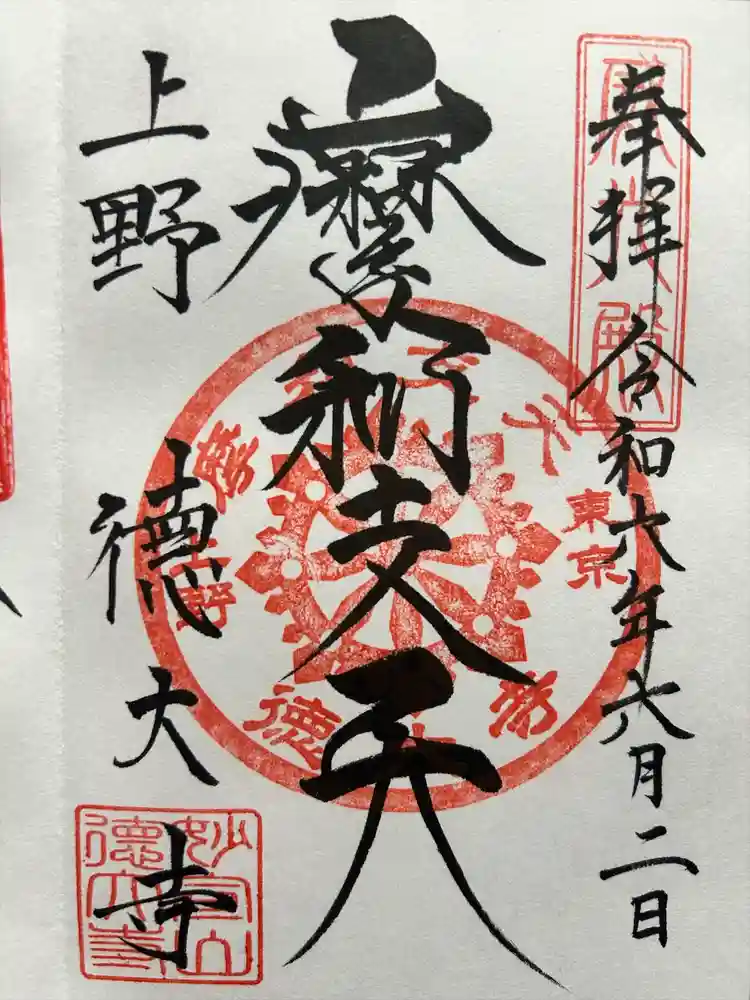 奉拝 令和六年六月二日
摩利支天
上野
徳大寺
東京
上野
徳大寺
妙宣山
徳大寺